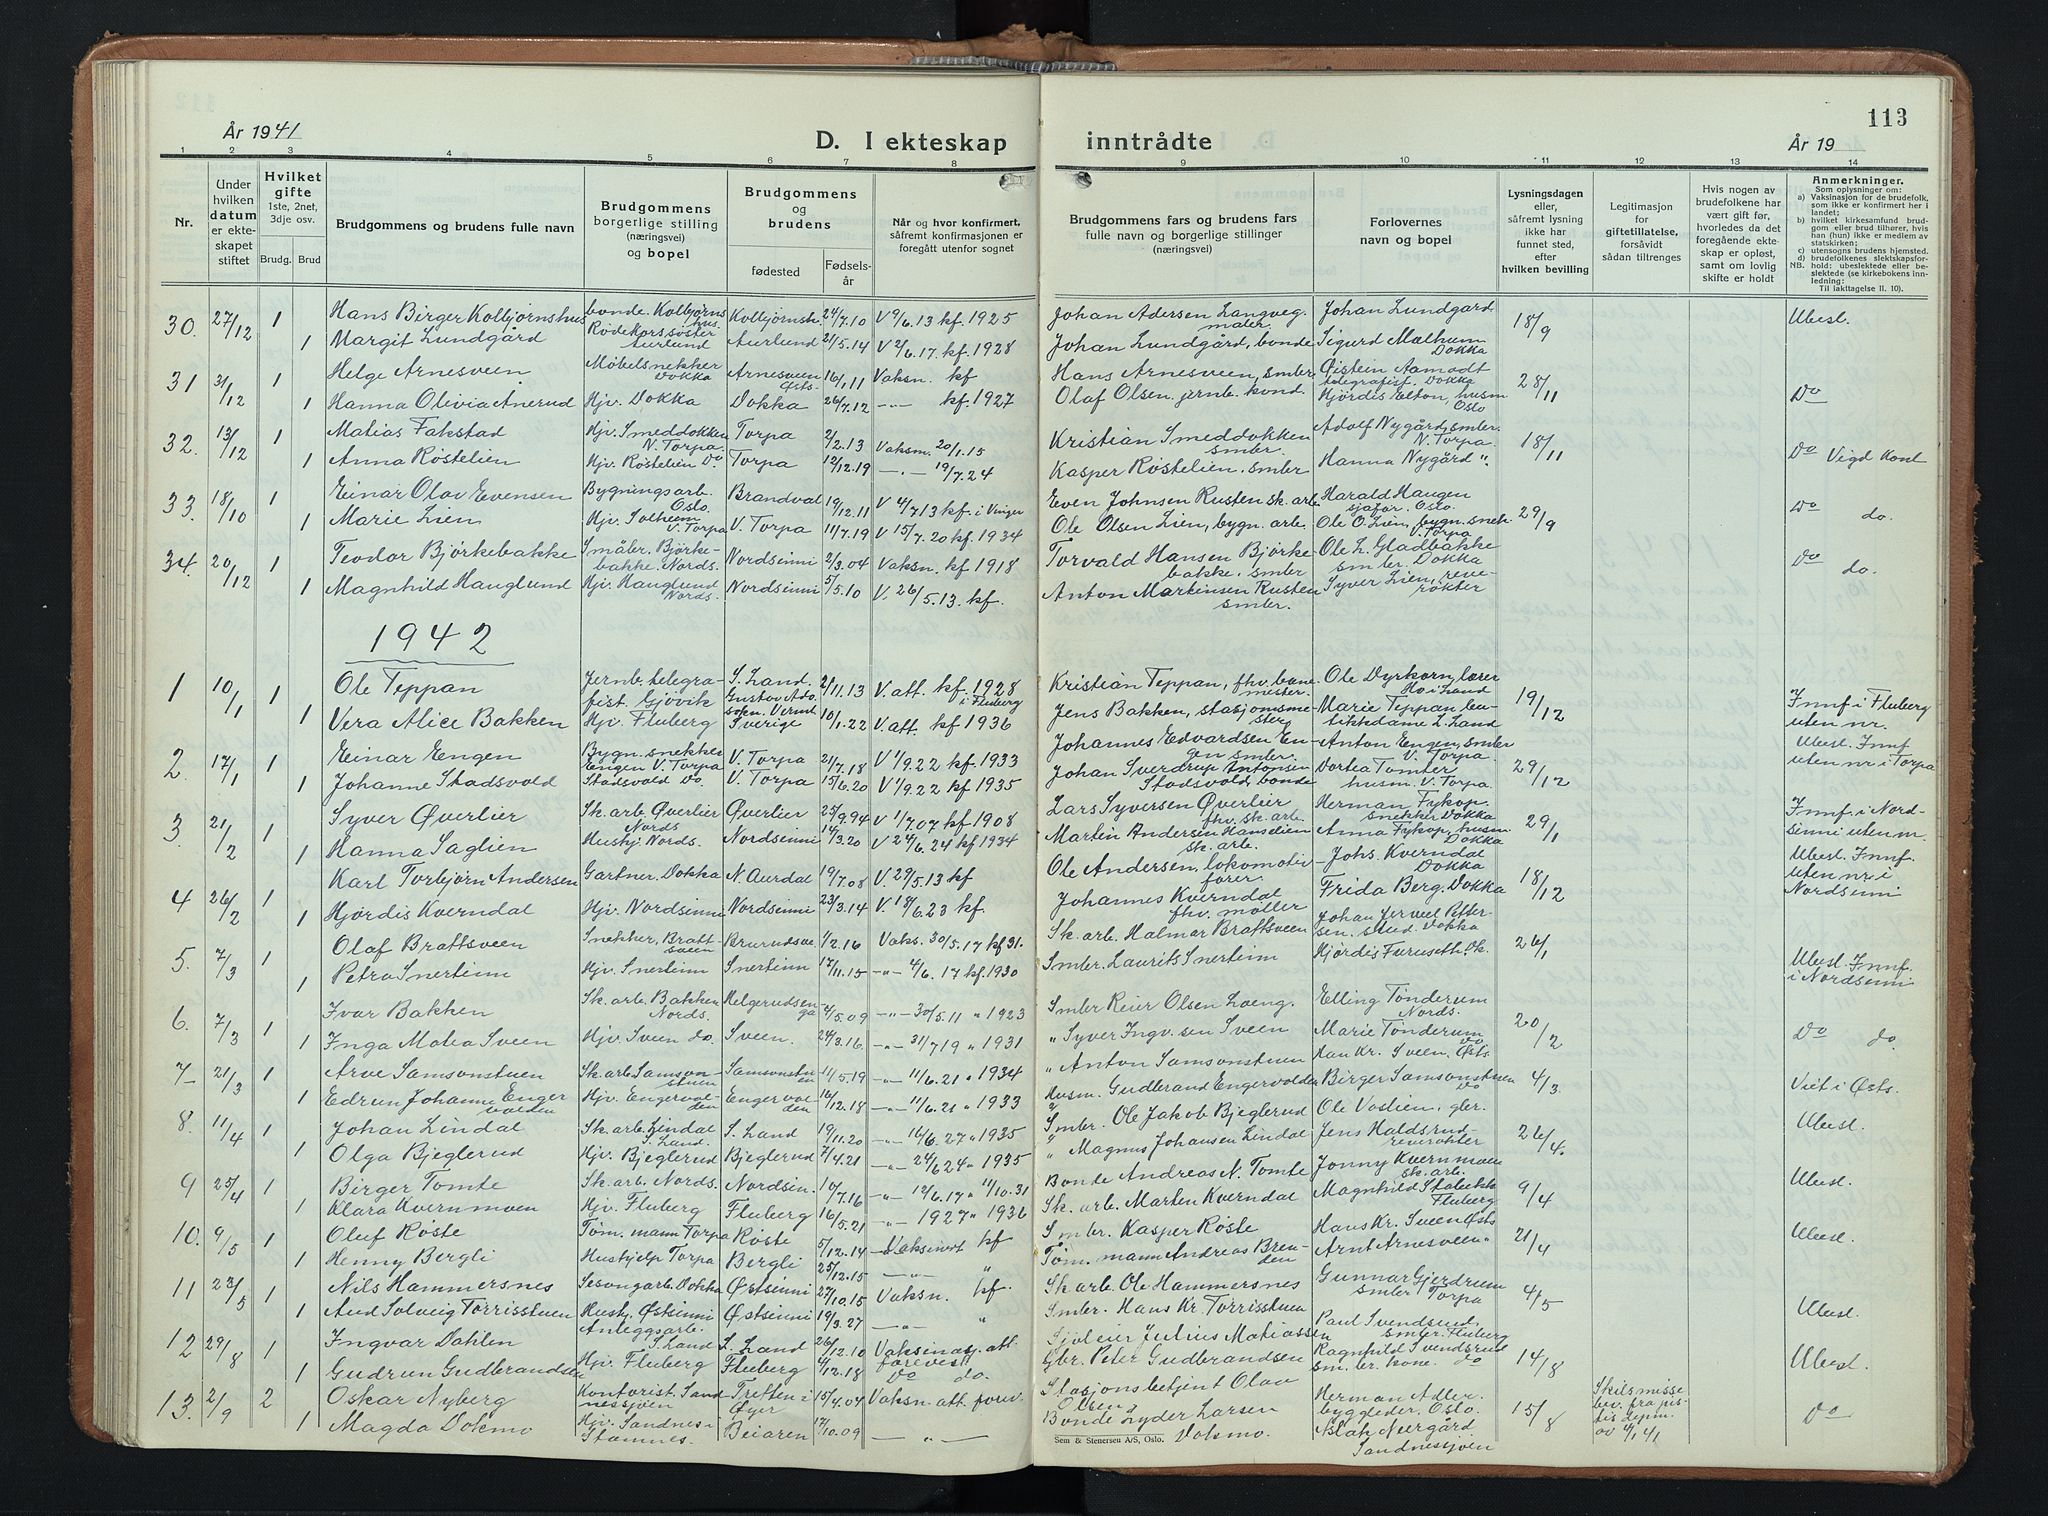 113
År 1941
D. I ekteskap inntrådte
År 19
1 2 3 4 5 6 7 8 9 10 11 12 13 14
Nr.
Under hvilken datum er ekteskapet stiftet
Hvilket gifte 1ste, 2net, 3dje osv.
Brudg. Brud
Brudgommens og brudens fulle navn
Brudgommens borgerlige stilling (næringsvei) og bopel
Brudgommens og brudens
fødested
Fødselsår
Når og hvor konfirmert, såfremt konfirmasjonen er foregått utenfor sognet
Brudgommens fars og brudens fars fulle navn og borgerlige stillinger (næringsvei)
Forlovernes navn og bopel
Lysningsdagen eller, såfremt lysning ikke har funnet sted, efter hvilken bevilling
Legitimasjon for giftetillatelse, forsåvidt sådan tiltrenges
Hvis nogen av brudefolkene har vært gift før, hvorledes da det foregående ekteskap er opløst, samt om lovlig skifte er holdt
Anmerkninger.
Som oplysninger om:
a) Vaksinasjon for de brudefolk, som ikke er konfirmert her i landet;
b) hvilket kirkesamfund brudgom eller brud tilhører, hvis han (hun) ikke er medlem av statskirken;
c) utensogns brudens hjemsted.
d) brudefolkenes slektskapsforhold: ubeslektede eller beslektede (se kirkebokens innledning:
NB.
Til iakttagelse II. 10).
30. 27/12 1 Hans Birger Kolbjørnshus bonde. Kolbjørnshus. Kolbjørnsh. 24/7.10 V 9/6.13 kf. 1925 Johan Adersen Langveg. maler. Johan Lundgård 18/9 Ubesl.
1 Margit Lundgård Rødekorssøster Aurlund Aurlund 21/5.14 V 2/6.17. kf. 1928 Johan Lundgård, bonde Sigurd Mælhum Dokka
31 31/12 1 Helge Arnesveen Møbelsnekker Dokka Arnesveen Østs. 16/1.11 Vaksn. kf Hans Arnesveen, smbr. Øistein Aamodt telegrafist. Dokka 28/11 Do
1 Hanna Olivia Anerud Hjv. Dokka Dokka 26/7.12 -"- kf. 1927 Olaf Olsen. jernb. kond. Hjørdis Elton, husm Oslo
32. 13/12 1 Matias Fakstad Hjv. Smeddokken N. Torpa. Torpa 2/2.13 Vaksm. 20/1.15 Kristian Smeddokken smbr. Adolf Nygård, smbr. N. Torpa. 18/11 Do Vigd Kont
1 Anna Røstelien Hjv. Røstelien Do Torpa 12/12.19 -"- 19/7.24 Kasper Røstelien. smbr Hanna Nygård "
33. 18/10 1 Einar Olav Evensen Bygningsarb. Oslo. Brandval 19/12.11 V 4/7.13 kf. i Vinger Even Johnsen Rusten sk. arb. Harald Haugen sjåfør. Oslo. 29/9 Do do.
1 Marie Lien Hjv. Solheim V. Torpa V. Torpa 11/7.19 V 15/7.20 kf. 1934 Ole Olsen Lien, bygn. arb. Ole O. Lien, bygn. snek. V. Torpa
34. 20/12 1 Teodor Bjørkebakke Småbr. Bjørkebakke. Nords. Nordsinni 2/3.04 Vaksn. kf 1918 Torvald Hansen Bjørkebakke. smbr Ole L. Gladbakke smbr. Dokka Do do.
1 Magnhild Hauglund Hjv. Hauglund Nords. Nordsinni 5/5.10 V. 26/5.13. kf. Anton Martinsen Rusten smbr. Syver Lien, reverøkter
1942
1 10/1 1 Ole Teppan Jernb. telegrafist. Gjøvik S. Land. 21/11.13 V. att. kf. 1928 i Fluberg Kristian Teppan, fhv. banemester. Ole Dyrkorn, lærer Ho i Land 19/12 Innf. i Fluberg uten nr.
1 Vera Alice Bakken Hjv. Fluberg Sverige 10/1.22 V. att. kf 1936 Jens Bakken, stasjonsmester Marie Teppan butikkdame S. Land
2. 17/1 1 Einar Engen Bygn. snekker Engen V. Torpa V. Torpa 21/7.18 V 1/9.22 kf. 1933 Johannes Edvardsen Engen smbr. Anton Engen, smbr V. Torpa. 29/12 Ubesl. Innf uten nr i Torpa
1 Johanne Stadsvold Stadsvold Do. V. Torpa 15/6.20 V 1/9.22 kf 1935 Johan Sverdrup Antonsen Stadsvold, bonde Dortea Tomter husm. V. Torpa.
3. 21/2 1 Syver Øverlier Sk. arb. Øverlier Nords Øverlier 25/9.94 V 1/7.07 kf 1908 Lars Syversen Øverlier fhv. sk. arb. Herman Fykop. snekker Dokka 29/1 Innf. i Nordsinni uten nr.
1 Hanna Saglien Hushj. Nords. Nordsinni 14/3.20 V 24/6.24 kf 1934 Martin Andersen Hanselien sk. arb. Anna Fykop, husm. Dokka
4 26/2 1 Karl Torbjørn Andersen Gartner. Dokka N. Aurdal 19/7.08 V. 29/5.13 kf Ole Andersen, lokomotivfører. Johs. Kverndal Dokka 18/12 Ubesl. Innf. uten nr i Nordsinni
1 Hjørdis Kverndal Hjv. Nordsinni Nordsinni 23/3.14 V. 18/6.23 kf. Johannes Kverndal fhv. møller Frida Berg. Dokka
5. 7/3 1 Olaf Brattsveen Snekker, Brattsveen 1/2.16 Vaks. 30/5.17 kf 31. Sk. arb. Halmar Brattsveen Pettersen. stud. Dokka 26/1 Ubesl. Innf. i Nordsinni
1 Petra Snertinn Hjv. Snertinn Snertinn 17/11.15 -"- 4/6.17 kf. 1930 Smbr. Laurits Snertinn Hjørdis Furuseth. Dk.
6. 7/3 1 Ivar Bakken Sk. arb. Bakken Nords. Helgerudsenga 4/5.09 -"- 30/5.11 " 1923 Smbr Reier Olsen Loeng. Elling Tønderum Nords. 20/2 Do do
1 Inga Matea Sveen Hjv. Sveen do. Sveen. 24/3.16. -"- 31/7.19 " 1931 " Syver Ingv. sen Sveen Marie Tønderum Do
7- 21/3 1 Arve Samsonstuen Sk. arb. Samsonstuen Samsonstuen 11/5.19 -"- 11/6.21 " 1934 " Anton Samsonstuen Han Kr. Sveen. Østs. 4/3 Viet i Østs.
1 Edrun Johanne Engervolden Hjv. Engervolden Engervolden 16/12.18 -"- 11/6.21 " 1933 Husm. Gudbrand Engervolden Birger Samsonstuen Do
8. 11/4 1 Johan Lindal Sk. arb. Lindal S. Land. S. Land 19/11.20 -"- 16/6.27 " 1935 Smbr. Ole Jakob Bjeglerud Ole Vostien, gbr. 26/4. Ubesl.
1 Olga Bjeglerud Hjv. Bjeglerud Bjeglerud 7/4.21 -"- 24/6 24 " 1935 " Magnus Johansen Lindal Jens Haldsrud reverøkter
9 25/4 1 Birger Tomte Sk. arb. Nords. Nordsin. 10/7.16 -"- 12/6.17 " 11/10.31 Bonde Andreas N. Tomte Jonny Kvernmoen sk. arb. 9/4 Ubesl.
1 Klara Kvernmoen Hjv. Fluberg Fluberg 16/5.21 -"- 1927 " 1936 Sk. arb. Marten Kverndal Magnhild Stabekk Fluberg
10. 9/5 1 Oluf Røste Tøm. mann Torpa Røste 5/12.14 -Vaksinert kf Smbr. Kasper Røste Hans Kr. Sveen Østs 21/4 Ubesl.
1 Henny Bergli Hushjelp Torpa Bergli 25/12.15 -"- " Tøm. mann Andreas Brenden Arnt Arnesveen "
11 23/5 1 Nils Hammersnes Sesongarb. Dokka Østsinni 27/10.15 Vaksn. kf. Sk arb. Ole Hammersnes Gunnar Gjerdrum smbr Torpa 4/5 Ubesl.
1 Aud Solveig Torrisstuen Hushj. Østsinni Østsinni 19/3.27 -"- " Smbr. Hans Kr. Torrisstuen
12 29/8 1 Ingvar Dahlen Anleggsarb. S. Land S. Land 26/12.10 Vaksinasj. att. forevist Sjøleier Julius Matiassen Paul Svendsrud. smbr. Fluberg 14/8 Ubesl.
1 Gudrun Gudbrandsen Hjv. Fluberg Fluberg 4/12.18 Do do. Gbr. Peter Gudbrandsen Ragnhild Svendsrud sm. br. kone. do
13. 2/9 2 Oskar Nyberg Kontorist. Sandnessjøen Tretten i Øyer 15/4.04 Vaksn. att forev. Stasjonsbetjent Olav Olsen Herman Adler byggleder. Oslo. 15/8 Skilsmissebev. fra justisdepm. av 4/1 41 Do
1 Magda Doksmo Hjv. Sandnes i Stamnes. Beiaren 17/10.09 -"- Bonde Lyder Larsen Doksmo. Aslak Neergård Sandnessjøen
Sem & Stenersen A/S, Oslo.